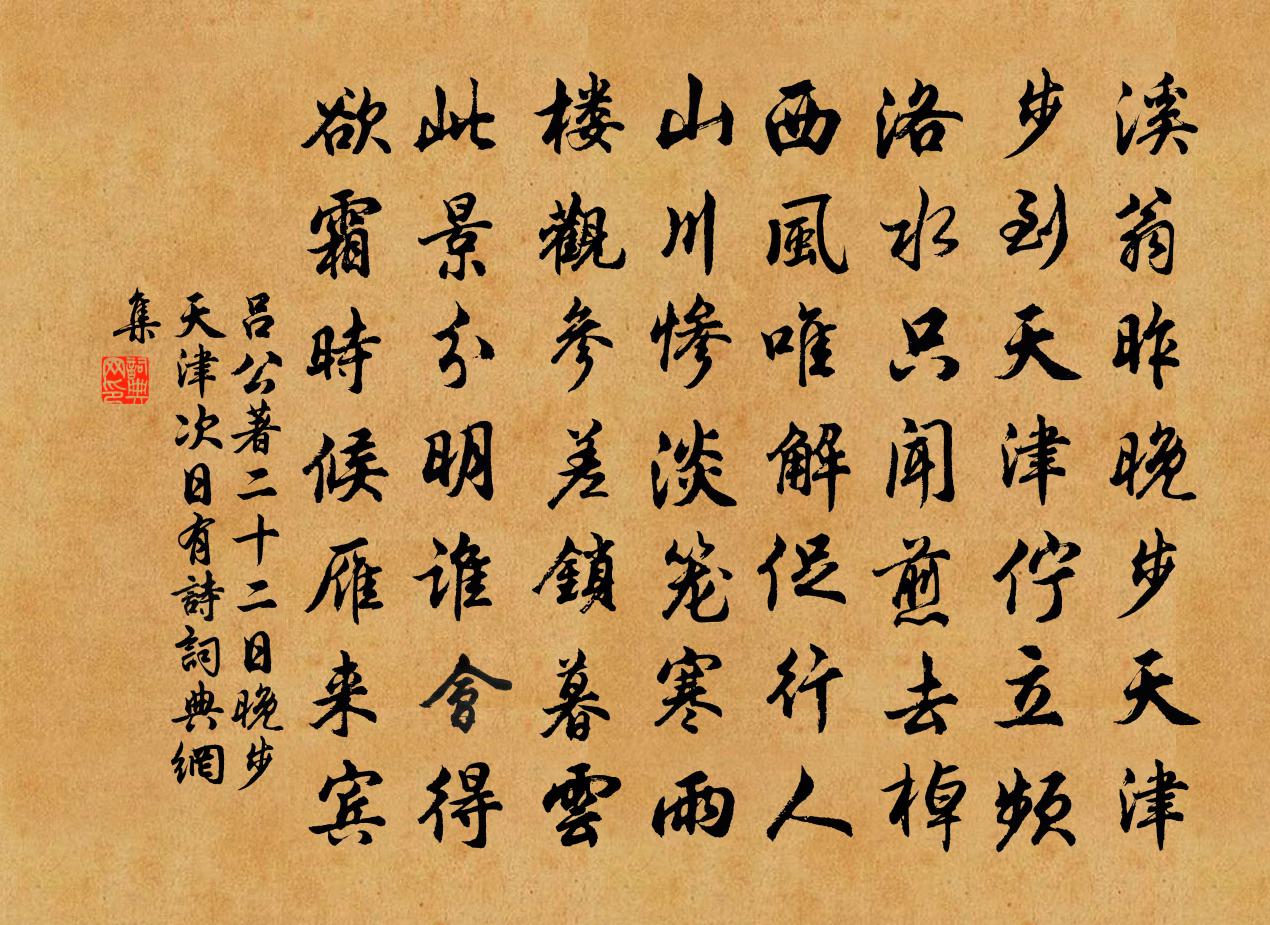 溪翁昨晚步天津
步到天津佇立頻
洛水只聞煎去棹
西風唯解促行人
山川慘淡笼寒雨
楼觀參差鎖暮雲
此景分明谁會得
欲霜時候雁来宾
吕公著二十二日晚步
天津次日有詩詞典網
集
詞典
网印